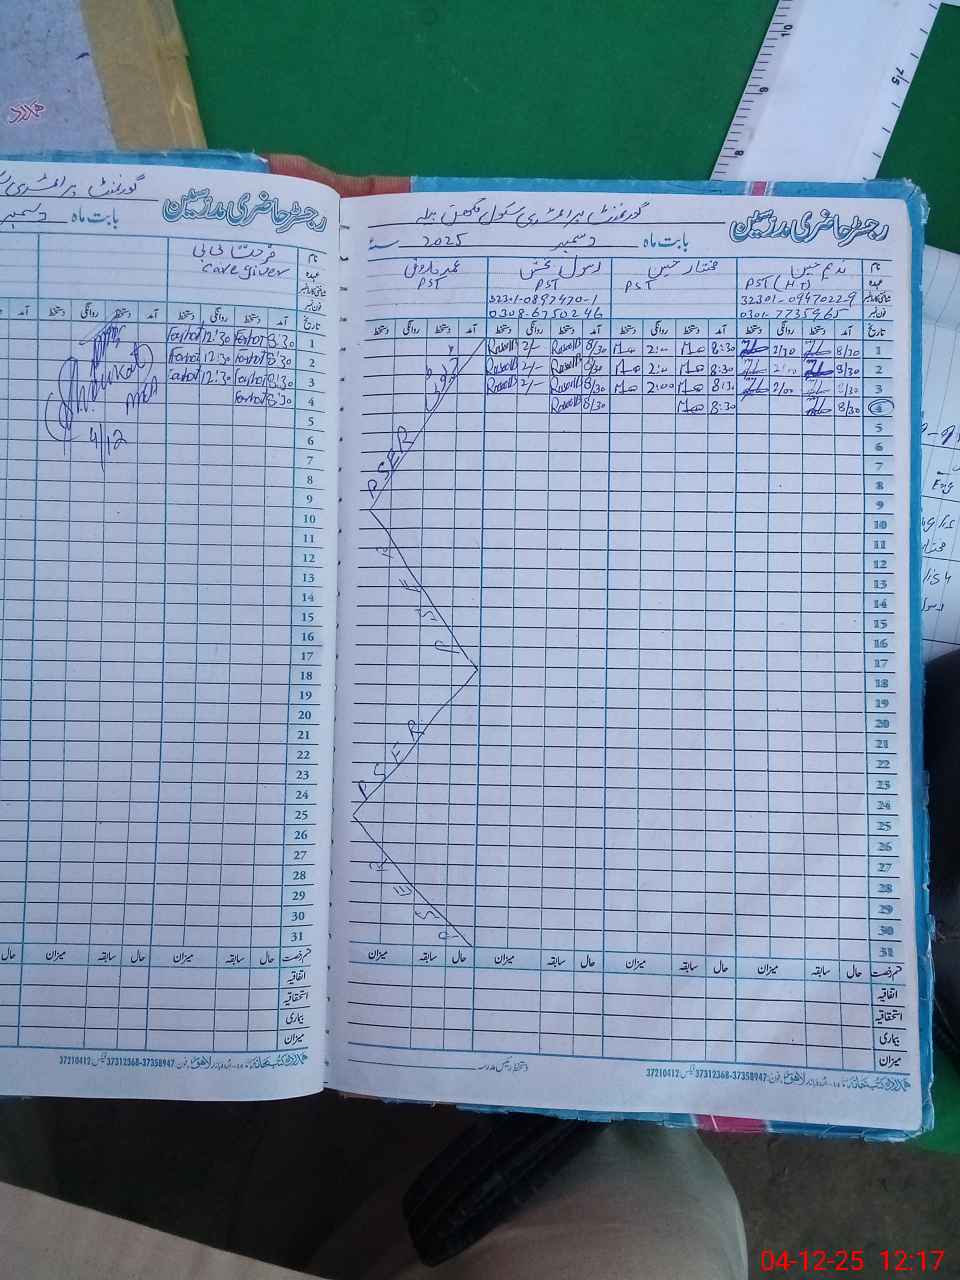 رجسٹر حاضری مدرسین
گورنمنٹ پرائمری سکول
بابت ماہ دسمبر 2025
نام
ندیم حسین
مختار حسین
رسول بخش
عمر فاروق
عہدہ
PST (H.T)
PST
PST
PST
32301-0947022-9
32301-0897470-1
0301-7735965
0308-6750246
تاریخ آمد دستخط روانگی دستخط آمد دستخط روانگی دستخط آمد دستخط روانگی دستخط آمد دستخط روانگی دستخط
1 8/30 2/30 8:30 2:00 8/30 2/-
2 8/30 2:00 8:30 2:00 8/30 2/-
3 8/30 2/00 8:30 2:00 8/30 2/-
4 8/30 8:30 8/30
5
6
7
8
9
10
11
12
13
14
15
16
17
18
19
20
21
22
23
24
25
26
27
28
29
30
31
PSER
PSER
PSER
PSER
قسم رخصت حال سابقہ میزان حال سابقہ میزان حال سابقہ میزان حال سابقہ میزان
اتفاقیہ
استحقاقیہ
بیماری
میزان
دستخط رئیس مدرسہ
فون: 37358947-37312368 فیکس: 37210412
رجسٹر حاضری مدرسین
گورنمنٹ پرائمری
بابت ماہ دسمبر
نام
فرحت بی بی
عہدہ
Care giver
تاریخ آمد دستخط روانگی دستخط آمد دستخط روانگی دستخط آمد
1 8:30 Farhat 12:30 Farhat
2 8:30 Farhat 12:30 Farhat
3 8:30 Farhat 12:30 Farhat
4 8:30 Farhat
Shaukat
MEA
4/12
5
6
7
8
9
10
11
12
13
14
15
16
17
18
19
20
21
22
23
24
25
26
27
28
29
30
31
قسم رخصت حال سابقہ میزان حال سابقہ میزان حال
اتفاقیہ
استحقاقیہ
بیماری
میزان
فون: 37358947-37312368 فیکس: 37210412
Eng
04-12-25 12:17